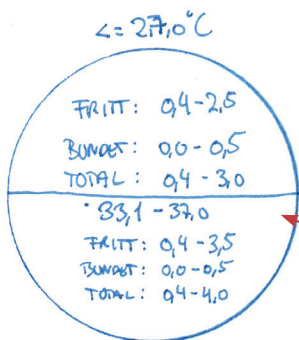 <= 27,0°C
FRITT: 0,4-2,5
BUNDET: 0,0-0,5
TOTAL: 0,4-3,0
33,1-37,0
FRITT: 0,4-3,5
BUNDET: 0,0-0,5
TOTAL: 0,4-4,0